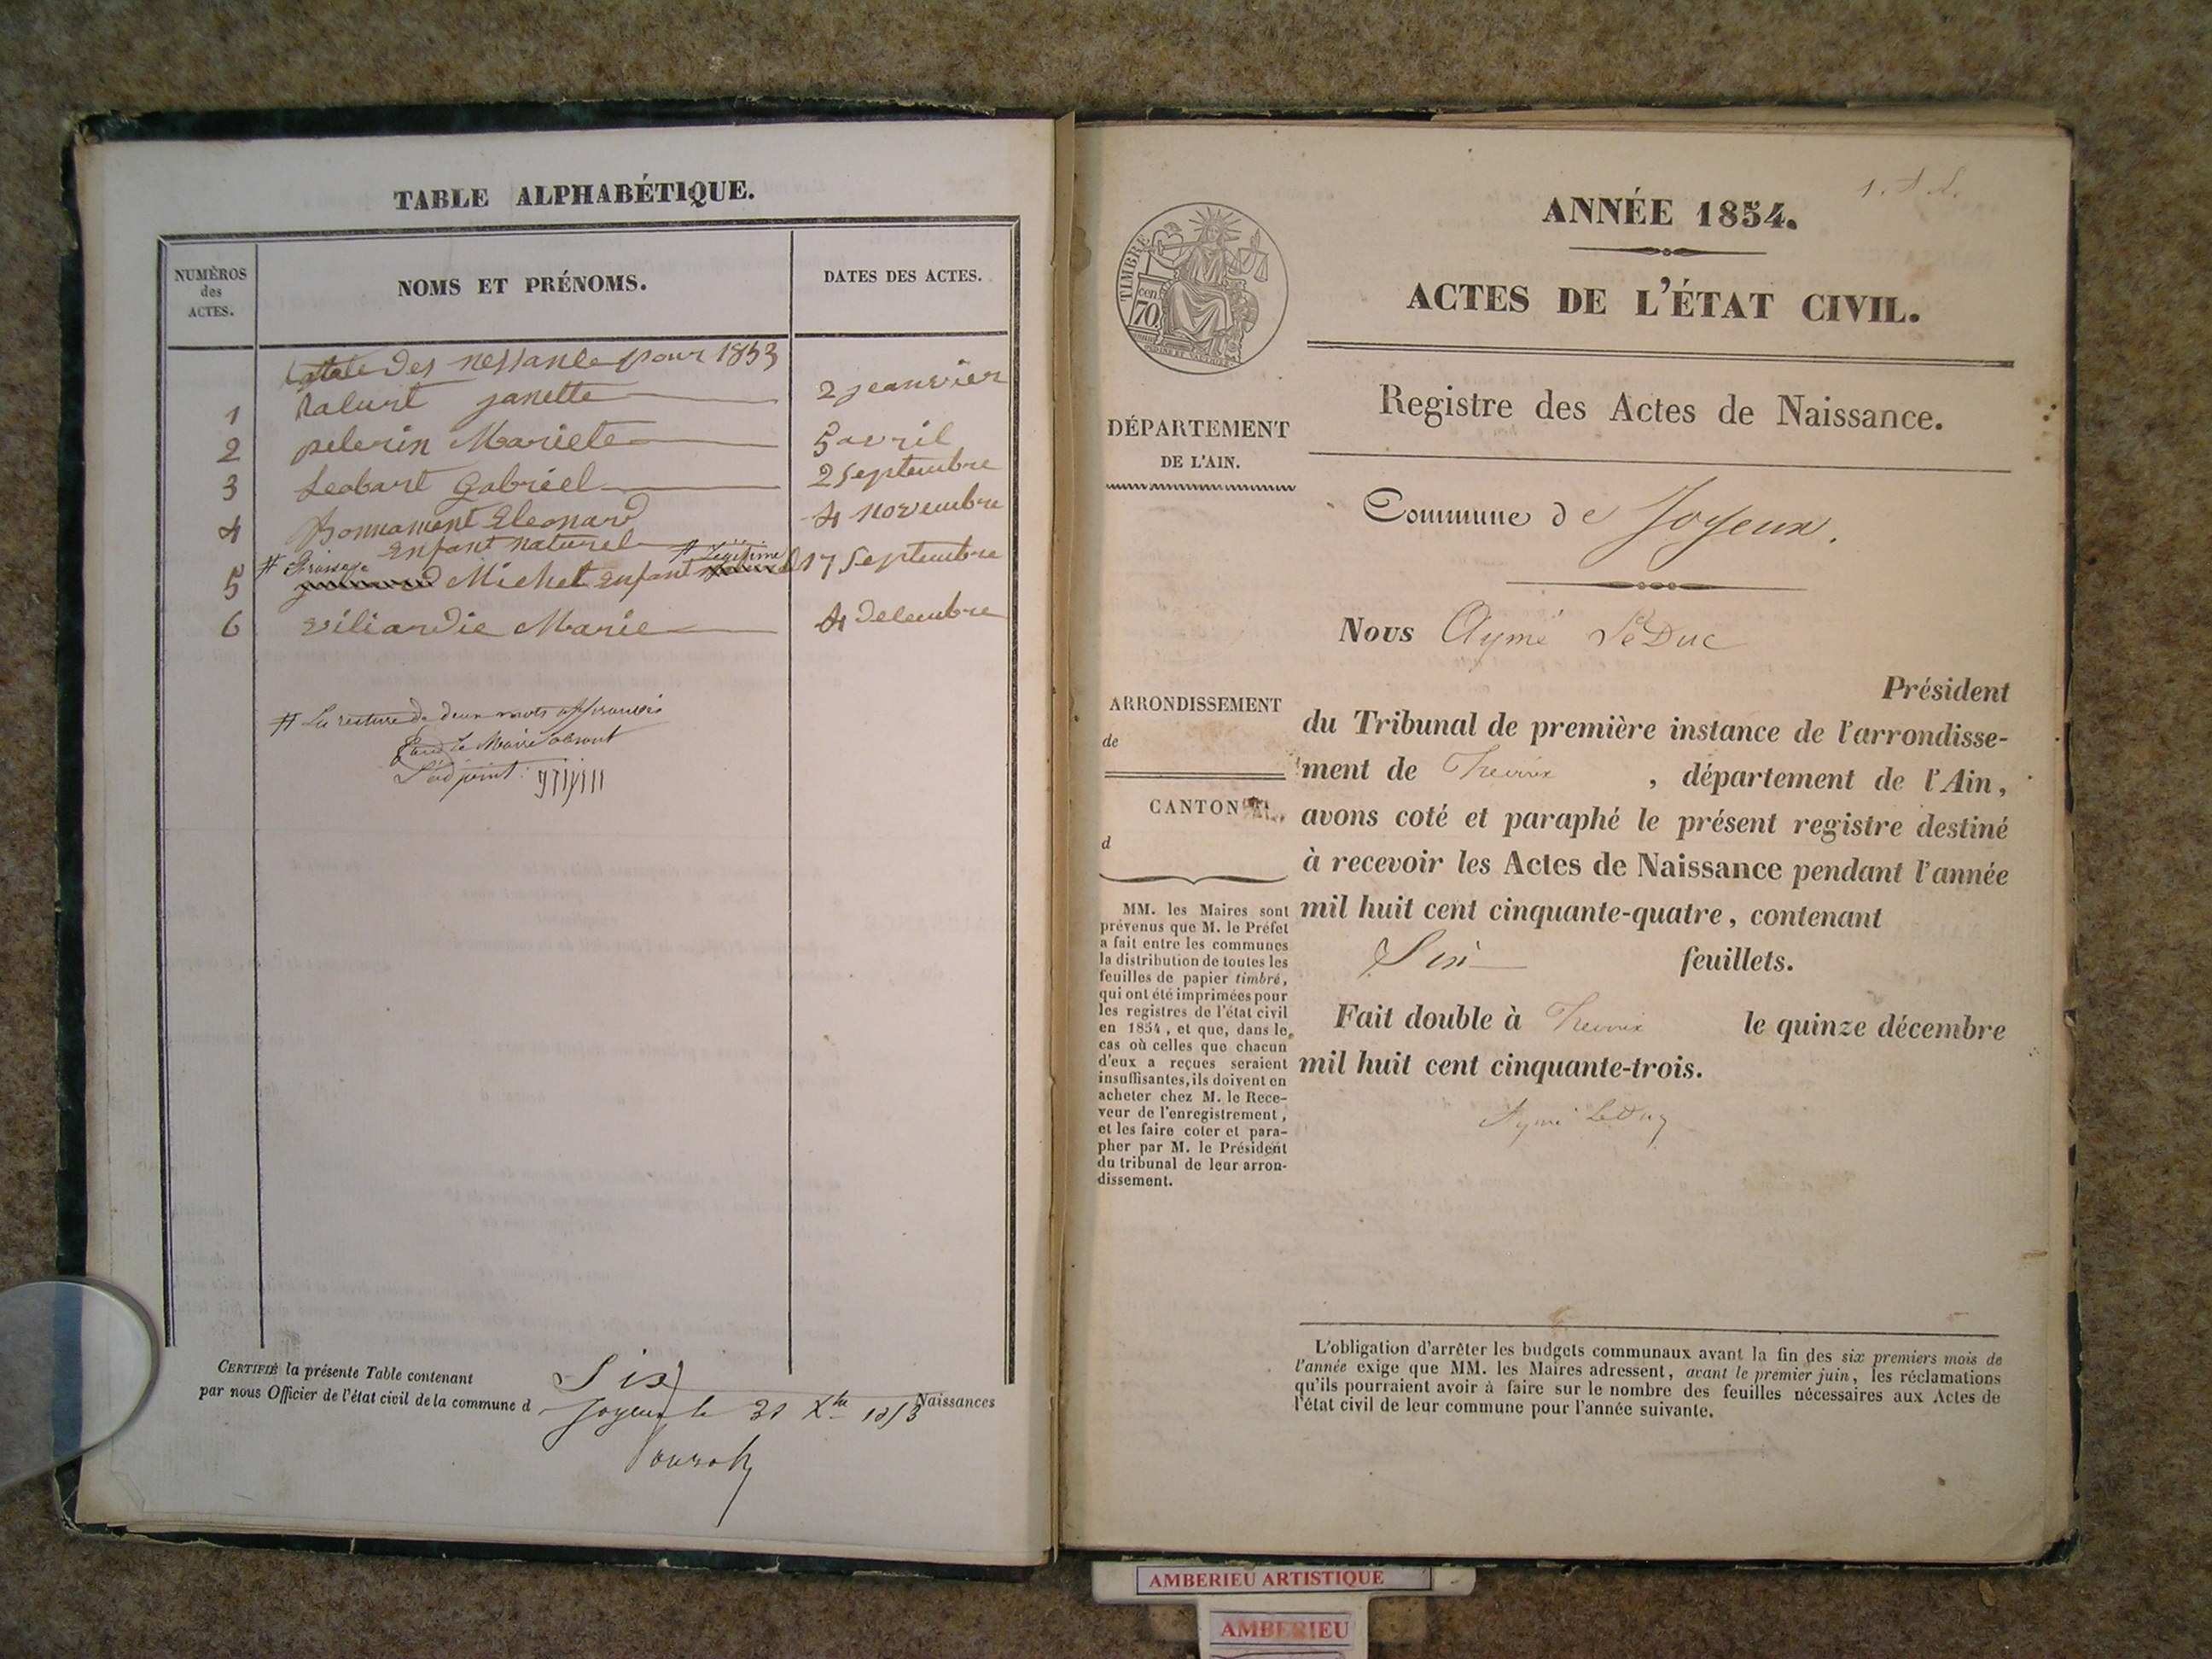 TABLE ALPHABÉTIQUE.
NUMÉROS
des
ACTES.
NOMS ET PRÉNOMS.
DATES DES ACTES.
des nessance pour 1853
1 janette 2 jeanvier
2 pelerin Mariete 5 avril
3 Leobart Gabriel 2 Septembre
4 Bonnament Eleonard 4 novembre
Enfant naturel
# # Légitime
5 Michel Enfant 17 Septembre
6 viliardie Marie 4 decembre
# La rature de deux mots
Pour le Maire absent
L'adjoint
CERTIFIÉ la présente Table contenant Six Naissances
par nous Officier de l'état civil de la commune d Joyeux le 31 Xbre 1853
1. A. L.
ANNÉE 1854.
ACTES DE L'ÉTAT CIVIL.
TIMBRE
70
cen.
Registre des Actes de Naissance.
DÉPARTEMENT
DE L'AIN.
Commune de Joyeux.
Nous Aymé LeDuc
Président
du Tribunal de première instance de l'arrondisse-
ment de Trévoux , département de l'Ain,
avons coté et paraphé le présent registre destiné
à recevoir les Actes de Naissance pendant l'année
mil huit cent cinquante-quatre, contenant
Six feuillets.
Fait double à Trévoux le quinze décembre
mil huit cent cinquante-trois.
Aymé LeDuc
ARRONDISSEMENT
de
CANTON
d
MM. les Maires sont
prévenus que M. le Préfet
a fait entre les communes
la distribution de toutes les
feuilles de papier timbré,
qui ont été imprimées pour
les registres de l'état civil
en 1854, et que, dans le
cas où celles que chacun
d'eux a reçues seraient
insuffisantes, ils doivent en
acheter chez M. le Rece-
veur de l'enregistrement,
et les faire coter et para-
pher par M. le Président
du tribunal de leur arron-
dissement.
L'obligation d'arrêter les budgets communaux avant la fin des six premiers mois de
l'année exige que MM. les Maires adressent, avant le premier juin, les réclamations
qu'ils pourraient avoir à faire sur le nombre des feuilles nécessaires aux Actes de
l'état civil de leur commune pour l'année suivante.
AMBERIEU ARTISTIQUE
AMBERIEU